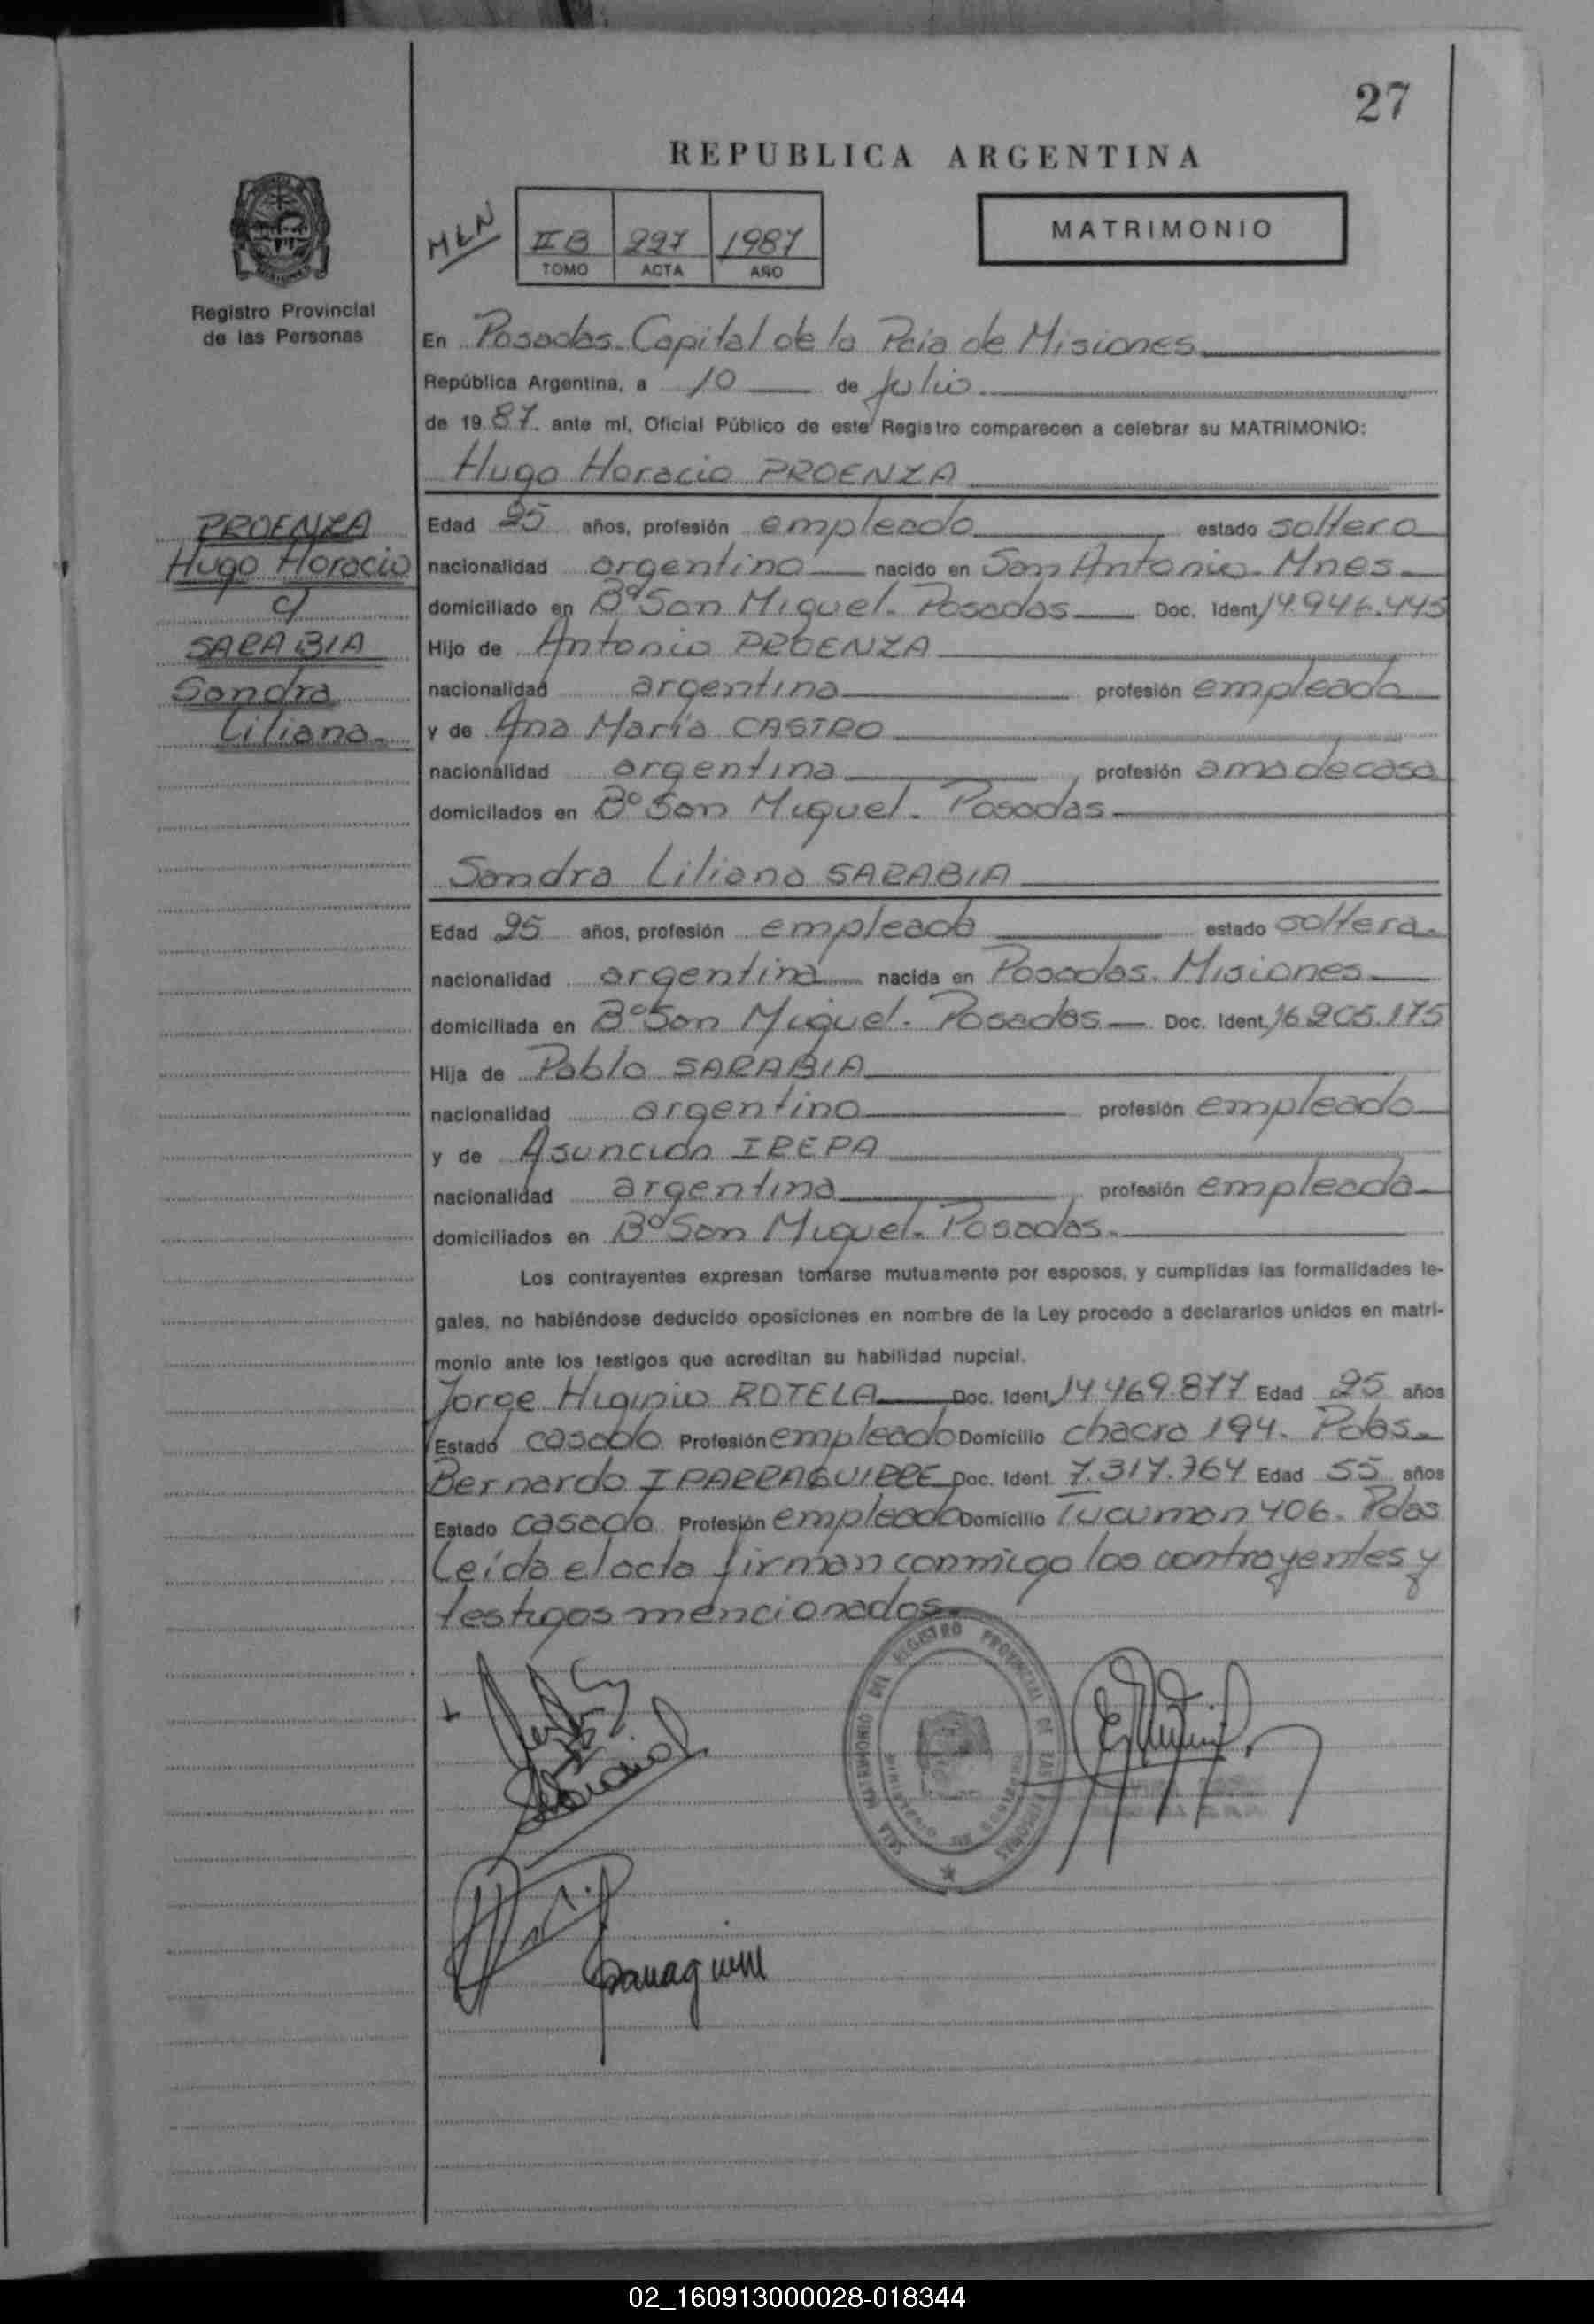 27
REPUBLICA ARGENTINA
MLN
II B 297 1987
TOMO ACTA AÑO
MATRIMONIO
Registro Provincial
de las Personas
En Posadas - Capital de la Pcia de Misiones
República Argentina, a 10 de Julio
de 1987. ante mí, Oficial Público de este Registro comparecen a celebrar su MATRIMONIO:
Hugo Horacio PROENZA
PROENZA
Hugo Horacio
c/
SARABIA
Sandra
Liliana.-
Edad 25 años, profesión empleado estado soltero
nacionalidad argentino nacido en San Antonio - Mnes
domiciliado en Bº San Miguel. Posadas Doc. Ident. 14.946.445
Hijo de Antonio PROENZA
nacionalidad argentina profesión empleado
y de Ana María CASTRO
nacionalidad argentina profesión ama de casa
domicilados en Bº San Miguel. Posadas
Sandra Liliana SARABIA
Edad 25 años, profesión empleada estado soltera.
nacionalidad argentina nacida en Posadas. Misiones
domiciliada en Bº San Miguel. Posadas Doc. Ident. 16.205.175
Hija de Pablo SARABIA
nacionalidad argentino profesión empleado
y de Asunción IREPA
nacionalidad argentina profesión empleada
domiciliados en Bº San Miguel. Posadas.
Los contrayentes expresan tomarse mutuamente por esposos, y cumplidas las formalidades le-
gales, no habiéndose deducido oposiciones en nombre de la Ley procedo a declararlos unidos en matri-
monio ante los testigos que acreditan su habilidad nupcial.
Jorge Higinio ROTELA Doc. Ident. 14.469.877 Edad 25 años
Estado casado Profesión empleado Domicilio chacra 194. Pdas.
Bernardo IPARRAGUIRRE Doc. Ident. 7.317.764 Edad 55 años
Estado casado Profesión empleado Domicilio Tucuman 406. Pdas
Leída el acta firman conmigo los contrayentes y
testigos mencionados.
SALA MATRIMONIO DEL REGISTRO PROVINCIAL DE LAS PERSONAS
MINISTERIO DE GOBIERNO
02_160913000028-018344